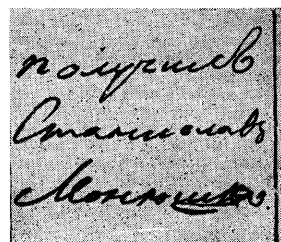 получилъ
Станиславъ
Монюшко.